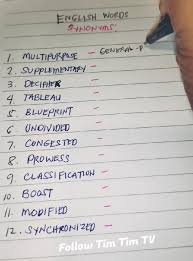 ENGLISH WORDS
SYNONYMS:
1. MULTIPURPOSE - GENERAL-P
2. SUPPLEMENTARY -
3. DECIPHER -
4. TABLEAU -
5. BLUEPRINT -
6. UNDIVIDED -
7. CONGESTED -
8. PROWESS -
9. CLASSIFICATION -
10. BOOST -
11. MODIFIED -
12. SYNCHRONIZED -
Follow Tim Tim TV